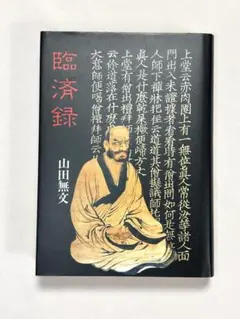 臨済録
山田無文
上堂云赤肉團上有一無位真人常從汝等諸人面
門出入未證據者看看時有僧出問如何是無位
人師下禪牀把住云道道其僧擬議師托
真人是什麼乾屎橛便歸方丈
上堂有僧出禮拜師
云你道落在什麼
大意師便喝僧禮拜師云